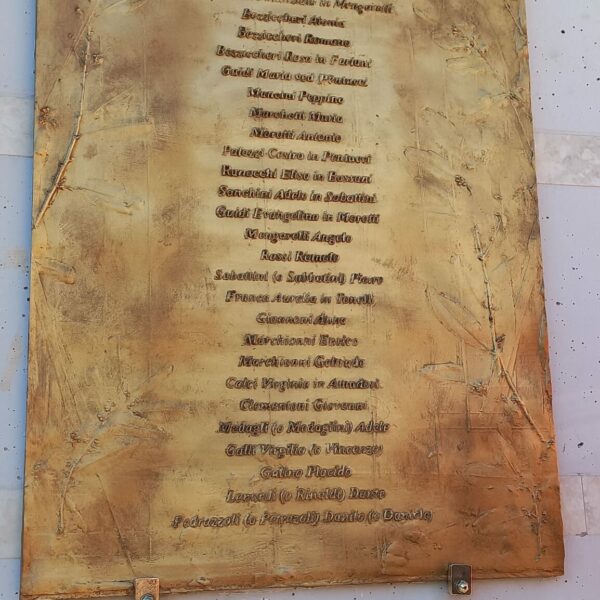 in Mengarelli
Bezziccheri Alenia
Bezziccheri Romano
Bezziccheri Rosa in Furiani
Guidi Maria ved
Mancini Peppino
Marchetti Mario
Moretti Antonio
Palazzi Castro in
Ranocchi Elisa in Bassani
Sanchini Adele in Sabattini
Guidi Evangelina in Moretti
Mengarelli Angelo
Rossi Romolo
Sabattini (o Sabbatini) Piero
Franca Aurelia in Tonelli
Giannoni Anna
Marchionni Enrico
Marchionni Geltrude
Calci Virginia in Amadori
Clementoni Giovanni
Medagli (o Medaglini) Adele
Galli Virgilio (o Vincenzo)
Placido
(o Rinaldi) Dante
Pedrazzoli (o Petrazoli) Danilo (o Daniele)